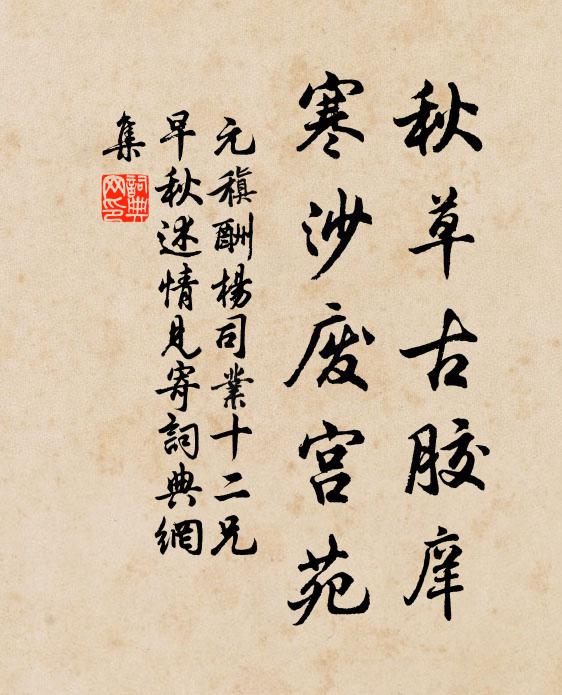 秋草古胶庠
寒沙废宫苑
元稹酬楊司業十二兄
早秋述情見寄詞典網
集
詞典网印